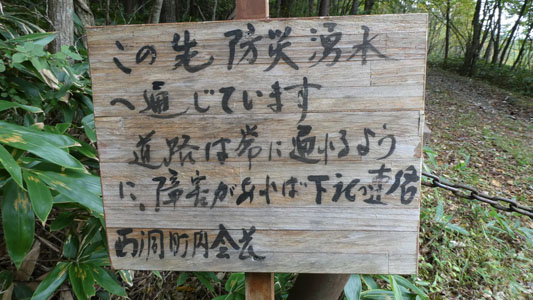 この先防災湧水
へ通じています
道路は常に通れるよう
に、障害があれば下記
西洞町内会長